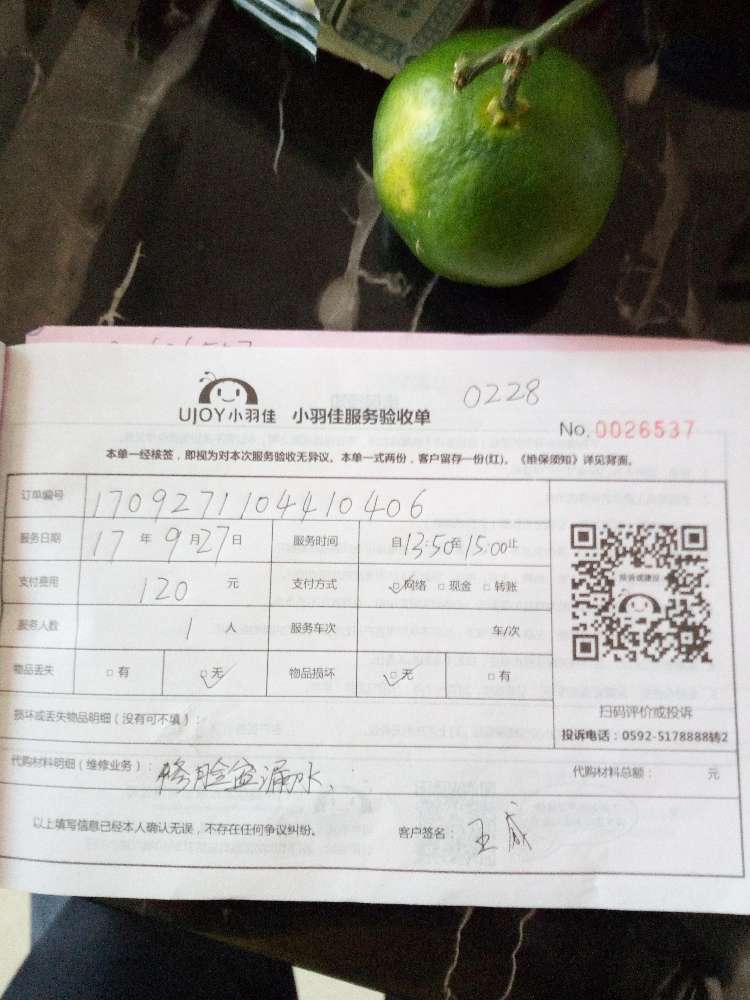 0228
UJOY小羽佳 小羽佳服务验收单
No. 0026537
本单一经核签，即视为对本次服务验收无异议。本单一式两份，客户留存一份(红)。《维保须知》详见背面。
订单编号 1709271104410406
服务日期 17 年 9 月 27 日 服务时间 自 13:50 至 15:00 止
支付费用 120 元 支付方式 □网络 □现金 □转账
服务人数 1 人 服务车次 车/次
物品丢失 □有 □无 物品损坏 □无 □有
投诉或建议
扫码评价或投诉
投诉电话：0592-5178888转2
损坏或丢失物品明细（没有可不填）：
代购材料明细（维修业务）： 修脸盆漏水、 代购材料总额： 元
以上填写信息已经本人确认无误，不存在任何争议纠纷。 客户签名： 王